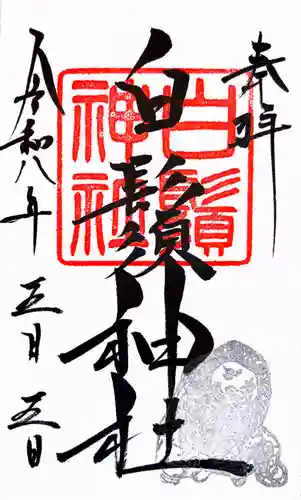 奉拝
白鬚神社
白鬚神社
令和八年
五月五日